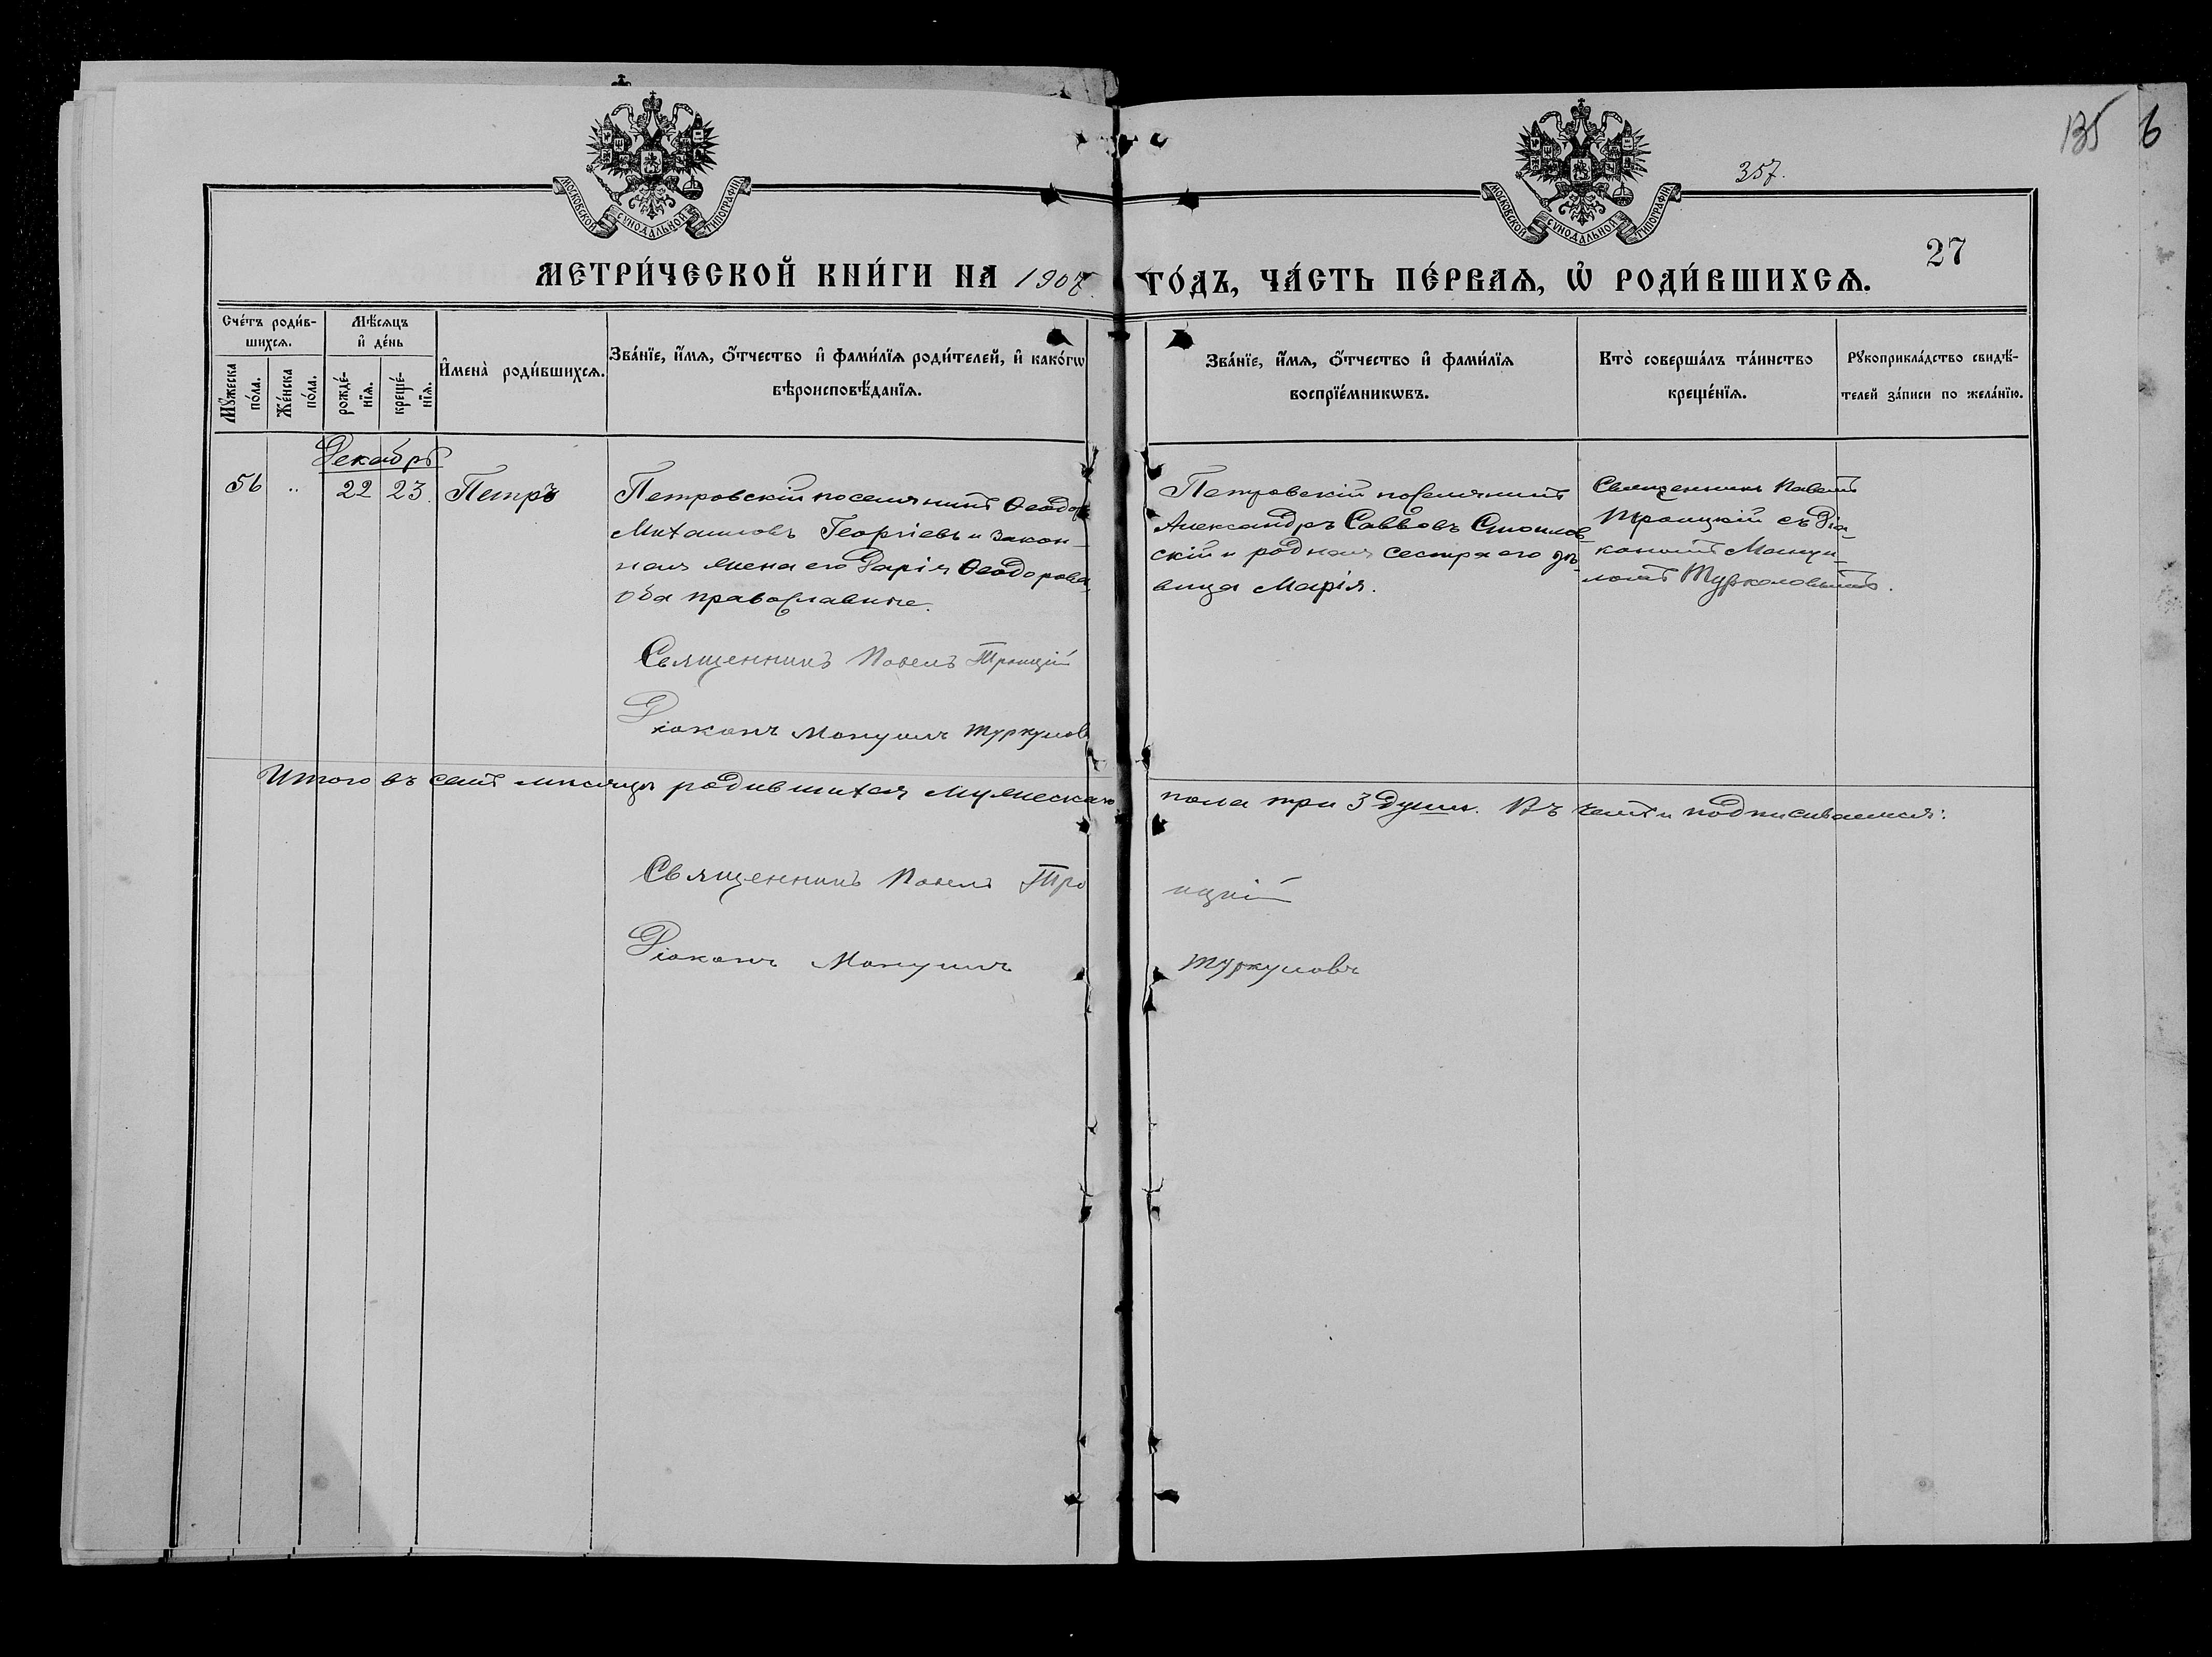 135 6
357.
27
МОСКОВСКОЙ СѴНОДАЛЬНОЙ ТИПОГРАФІИ
МОСКОВСКОЙ СѴНОДАЛЬНОЙ ТИПОГРАФІИ
МЕТРИ́ЧЕСКОЙ КНИ́ГИ НА 1907 ГО́ДЪ, ЧА́СТЬ ПЕ́РВАѦ, Ѡ҆ РОДИ́ВШИХСѦ.
Сче́тъ роди́в-
шихсѧ.
Мꙋ́жеска по́ла.
Же́нска по́ла.
Мѣ́сѧцъ
и҆ де́нь
рожде́-
нїѧ.
креще́-
нїѧ.
И҆мена̀ роди́вшихсѧ.
Зва́нїе, и҆́мѧ, ѻ҆́тчество и҆ фами́лїѧ роди́телей, и҆ како́гѡ
вѣроисповѣ́данїѧ.
Зва́нїе, и҆́мѧ, ѻ҆́тчество и҆ фами́лїѧ
воспрїе́мникѡвъ.
Кто̀ соверша́лъ та́инство
креще́нїѧ.
Рꙋкоприкла́дство свидѣ́-
телей за́писи по жела́нїю.
Декабрь
56 „ 22 23. Петръ
Петровскій поселянинъ Ѳеодоръ
Михаиловъ Георгіевъ и закон-
ная жена его Дарія Ѳеодорова,
оба православные.
Священникъ Павелъ Троицкій
Діаконъ Мануилъ Туркуловъ
Петровскій поселянинъ
Александръ Саввовъ Стоилов-
скій и родная сестра его дѣ-
вица Марія.
Священникъ Павелъ
Троицкій съ діа-
кономъ Мануи-
ломъ Туркуловымъ.
Итого въ семъ мѣсяцѣ родившихся мужескаго пола три 3 души. Въ чемъ и подписываемся:
Священникъ Павелъ Троицкій
Діаконъ Мануилъ Туркуловъ